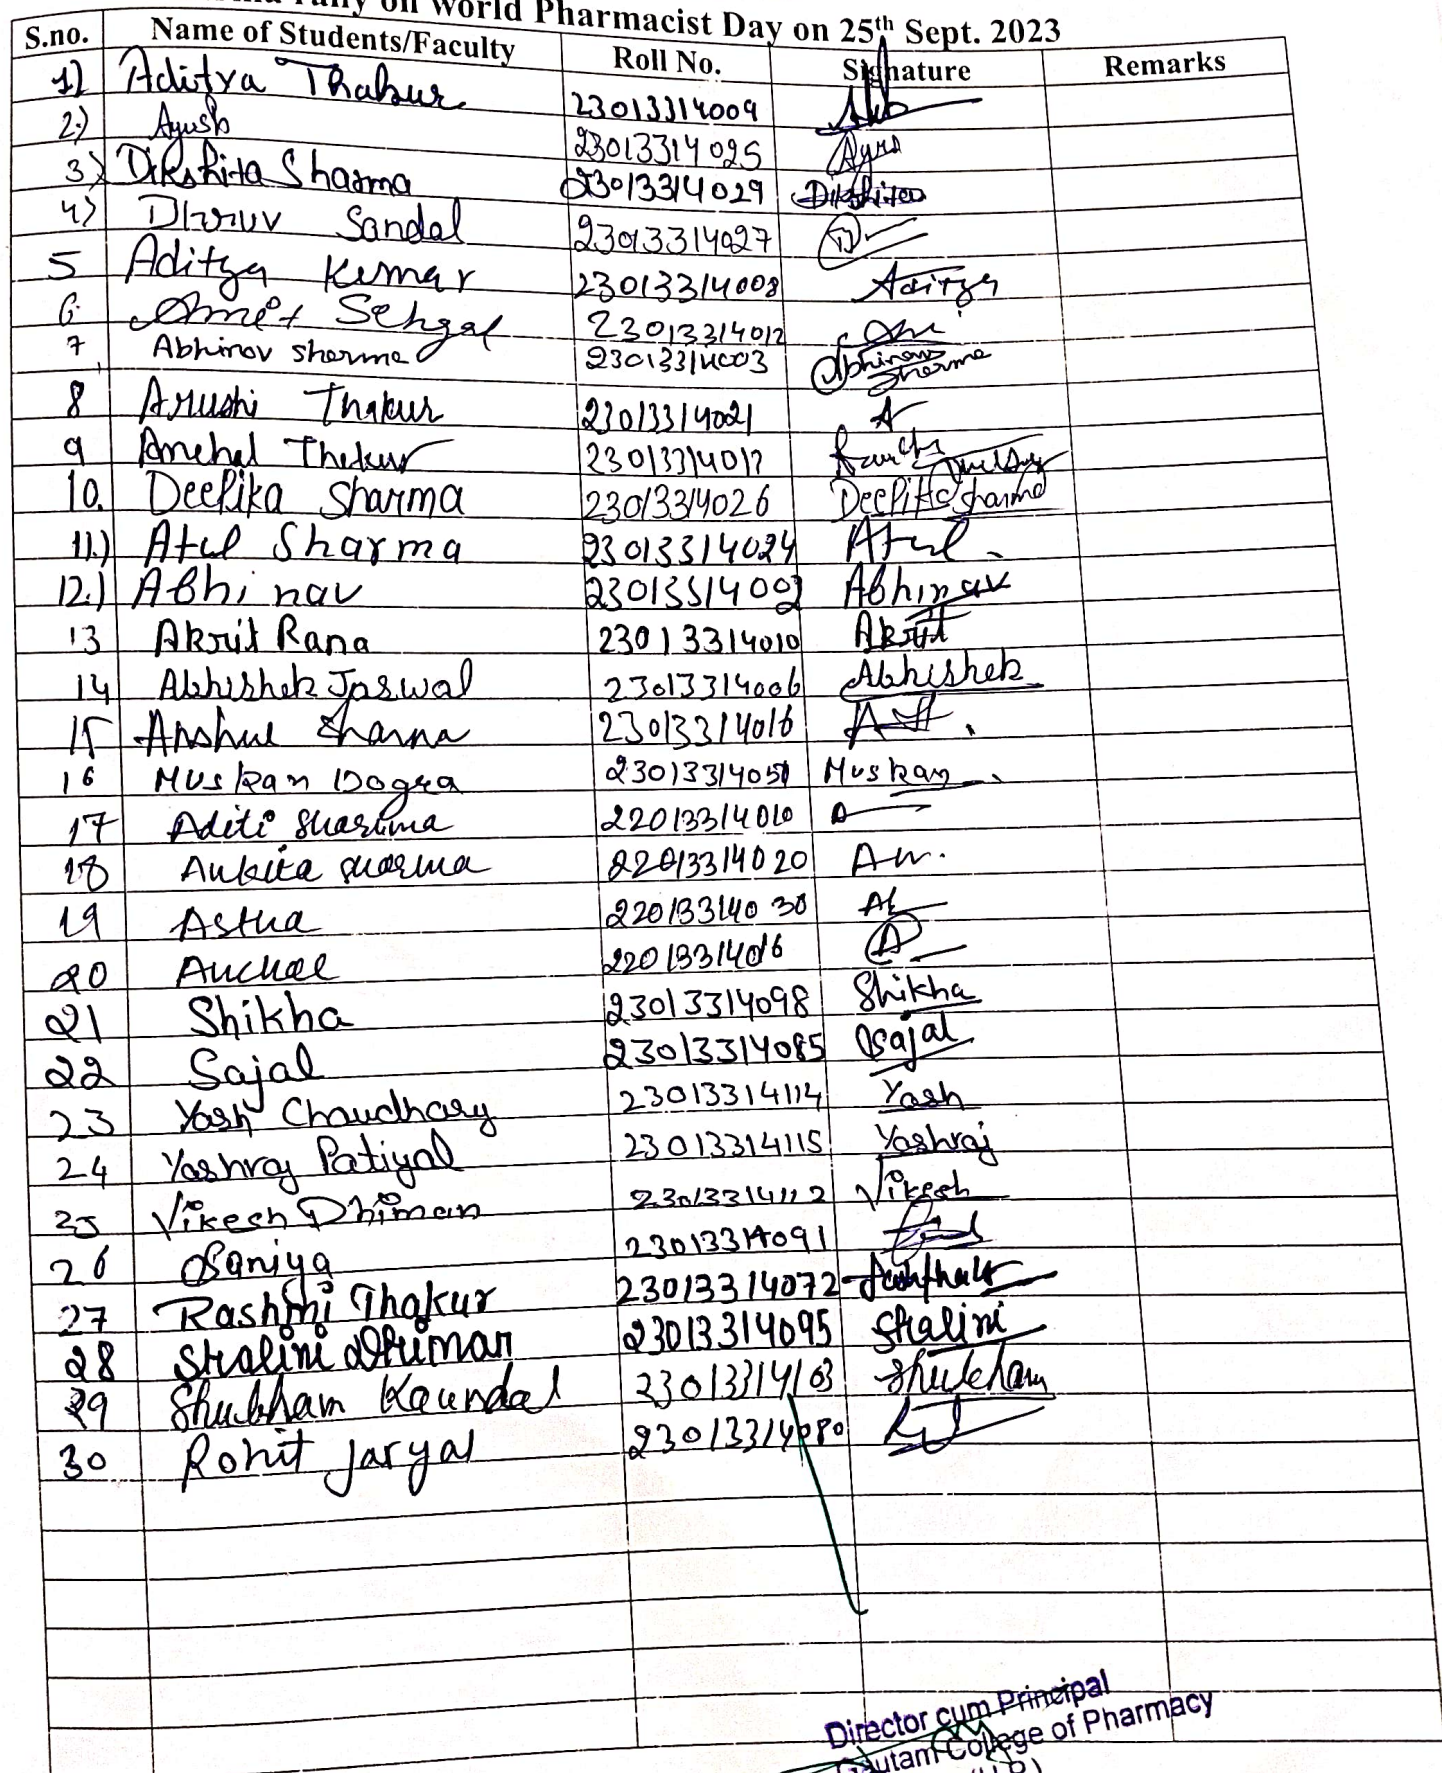 rally on World Pharmacist Day on 25th Sept. 2023
S.no. Name of Students/Faculty Roll No. Signature Remarks
1) Aditya Thakur 23013314009
2.) Ayush 23013314025 Ayus
3) Dikshita Sharma 23013314029 Dikshita
4) Dhruv Sandal 23013314027
5 Aditya Kumar 23013314008 Aditya
6. Ahmet Sehgal 23013314012
7 Abhinav Sharma 23013314003 Abhinav Sharma
8 Arushi Thakur 23013314021 A
9 Anchal Thakur 23013314017
10. Deepika Sharma 23013314026 Deepika Sharma
11.) Atul Sharma 23013314024 Atul
12.) Abhinav 23013314002 Abhinav
13 Akrit Rana 23013314010 Akrit
14 Abhishek Jaswal 23013314006 Abhishek
15 Anshul Sharma 23013314016
16 Muskan Dogra 23013314051 Muskan
17 Aditi Sharma 22013314010 A
18 Ankita Sharma 22013314020 An.
19 Astha 22013314030
20 Anchal 22013314016 A
21 Shikha 23013314098 Shikha
22 Sajal 23013314085 Sajal
23 Yash Chaudhary 23013314114 Yash
24 Yashraj Patiyal 23013314115 Yashraj
25 Vikesh Dhiman 23013314112 Vikesh
26 Saniya 23013314091
27 Rashmi Thakur 23013314072
28 Shalini Dhiman 23013314095 Shalini
29 Shubham Kaundal 23013314103 Shubham
30 Rohit Jaryal 23013314080
Director cum Principal
Gautam College of Pharmacy